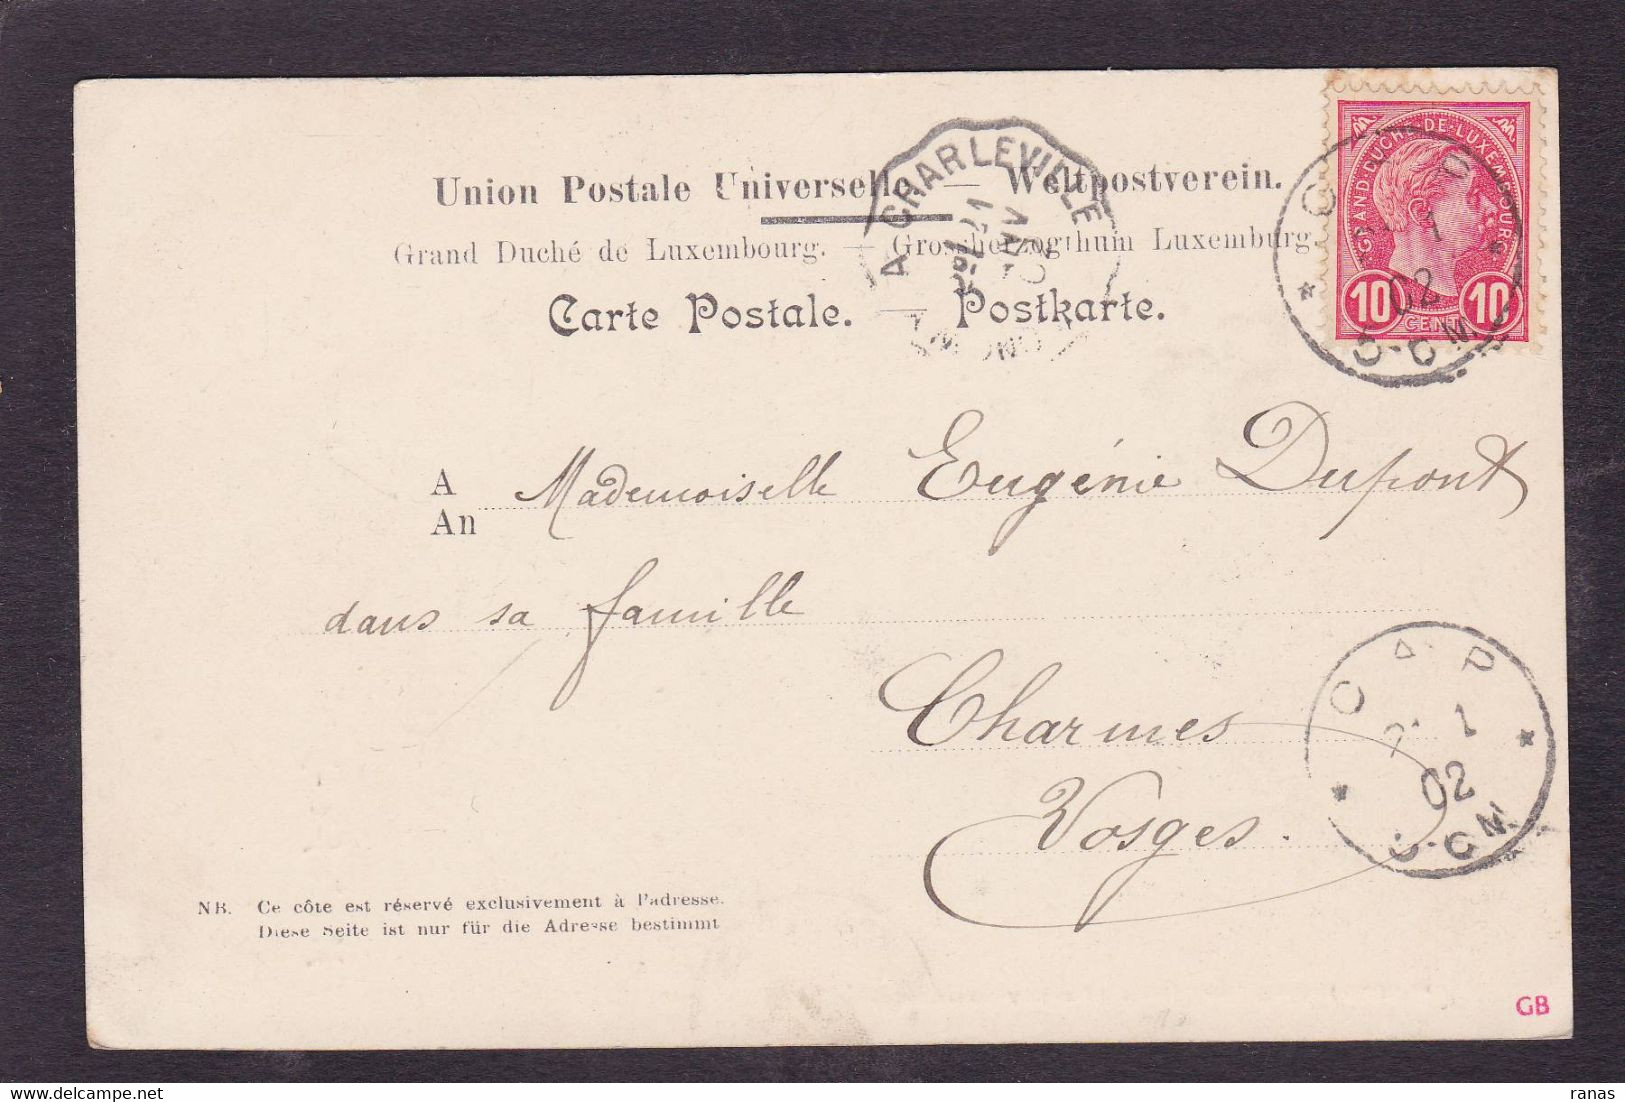 Union Postale Universelle — Weltpostverein.
Grand Duché de Luxembourg. — Grossherzogthum Luxemburg.
Carte Postale. — Postkarte.
A CHARLEVILLE
21
JANV
02
GRAND-DUCHÉ-DE-LUXEMBOURG
10 CENT 10
1
02
A Mademoiselle Eugénie Dupont
An
dans sa famille
Charmes
Vosges.
CAP
1
02
NB. Ce côte est réservé exclusivement à l'adresse.
Diese Seite ist nur für die Adresse bestimmt
GB
ranas